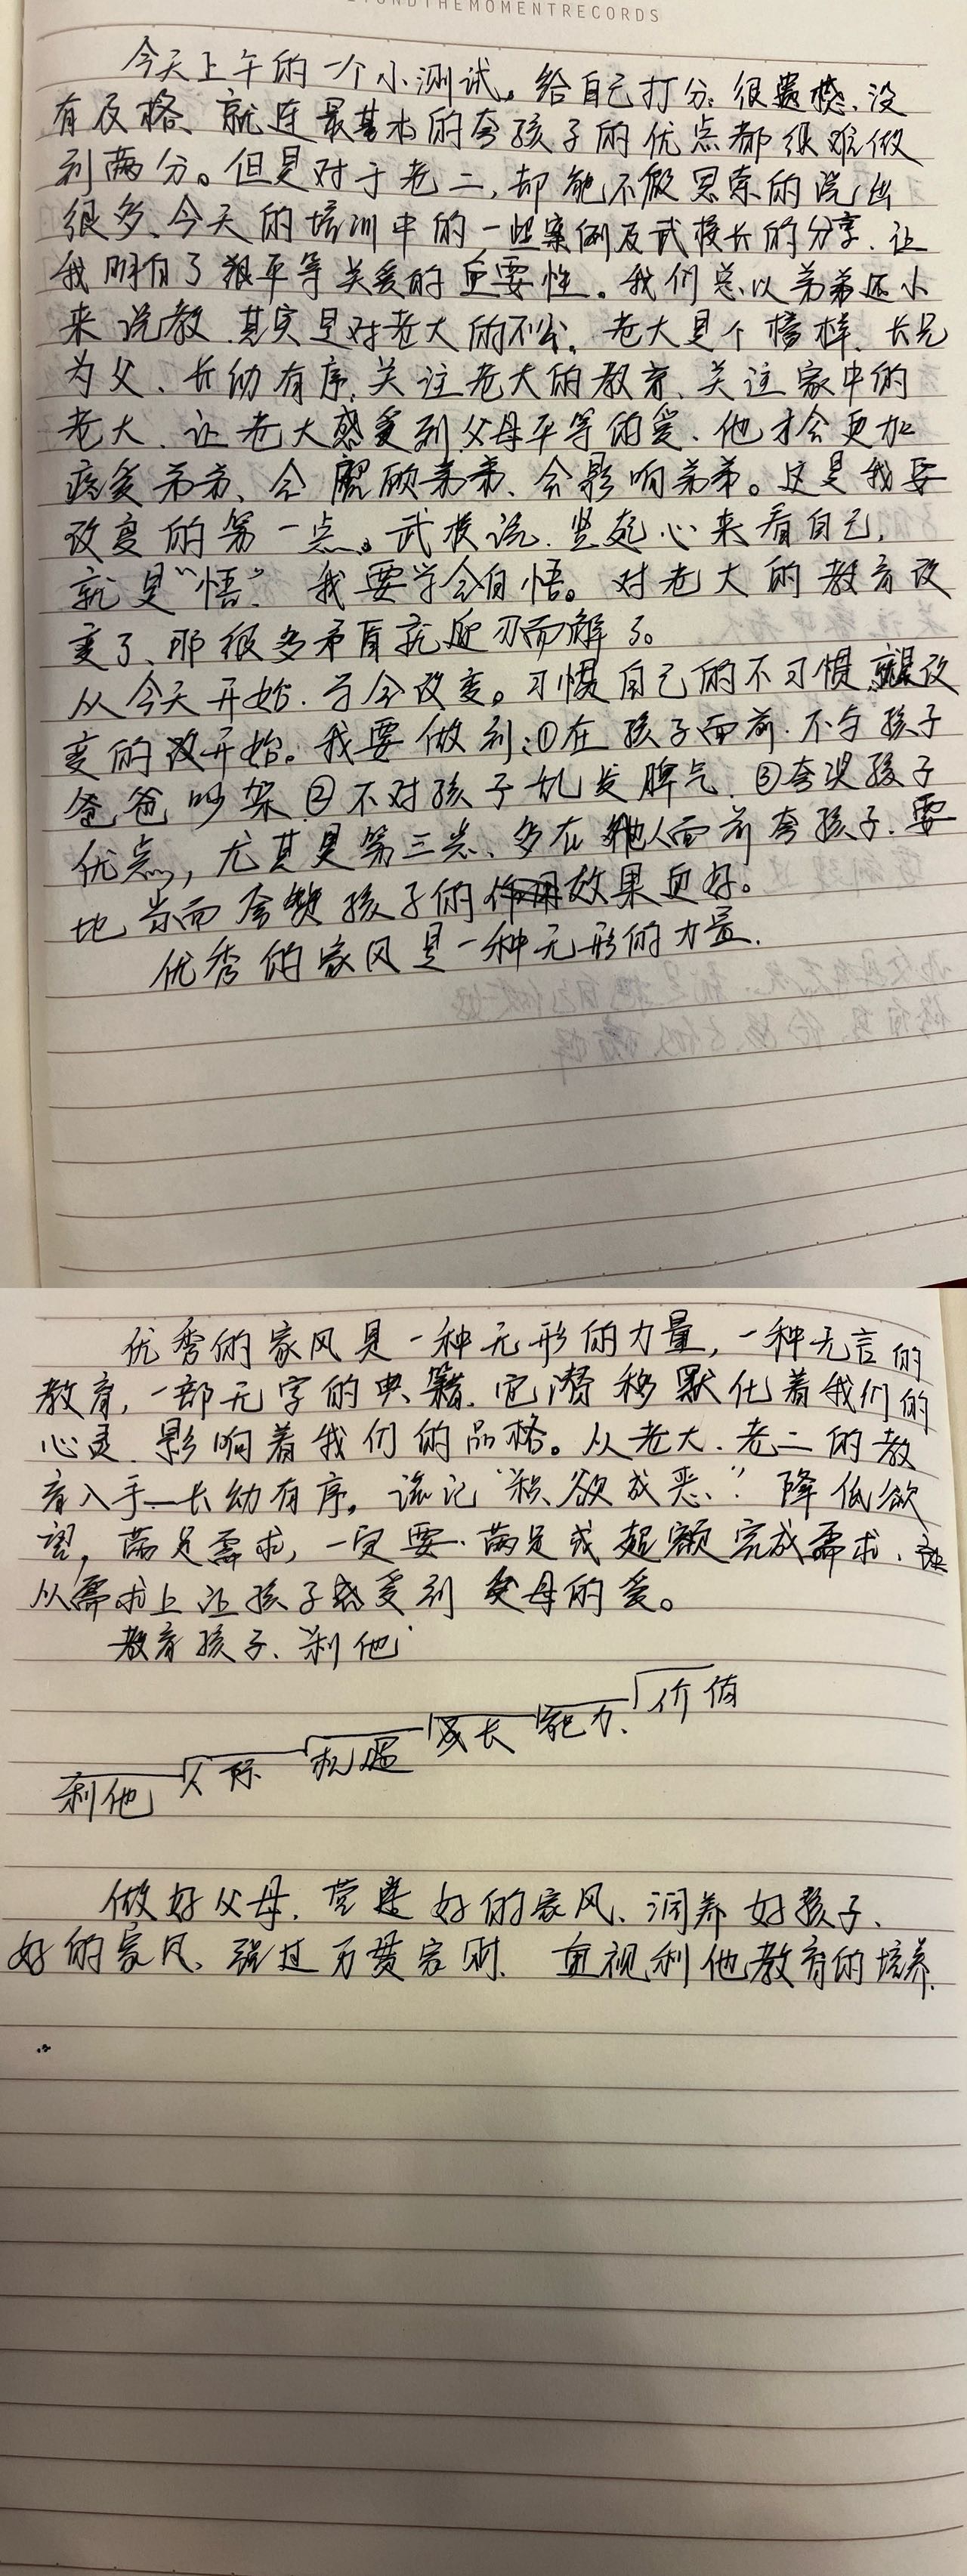 YONDTHEMOMENTRECORDS
今天上午的一个小测试。给自己打分.很遗憾、没
有及格、就连最基本的夸孩子的优点都很难做
到两分。但是对于老二,却能不假思索的说出
很多、今天的培训中的一些案例及武校长的分享、让
我明白了狠平等关爱的重要性。我们总以弟弟还小
来说教.其实是对老大的不公.老大是个榜样、长兄
为父、长幼有序.关注老大的教育、关注家中的
老大、让老大感受到父母平等的爱、他才会更加
疼爱弟弟、会照顾弟弟、会影响弟弟。这是我要
改变的第一点。武校说.竖起心来看自己,
就是“悟”我要学会自悟。对老大的教育改
变了、那很多矛盾就迎刃而解了。
从今天开始.学会改变。习惯自己的不习惯 就是改
变的开始。我要做到:①在孩子面前.不与孩子
爸爸吵架②不对孩子乱发脾气、③夸奖孩子
优点,尤其是第三点、多在他人面前夸孩子.要
比当面夸赞孩子的效果更好。
优秀的家风是一种无形的力量.
优秀的家风是一种无形的力量,一种无言的
教育,一部无字的典籍.它潜移默化着我们的
心灵.影响着我们的品格。从老大.老二的教
育入手—长幼有序。谨记“积欲成恶.”降低欲
望,满足需求,一定要.满足或超额完成需求、
从需求上让孩子感受到父母的爱。
教育孩子、利他
利他 人际 机遇 成长 能力、价值
做好父母.营造好的家风、润养好孩子、
好的家风、强过万贯家财.重视利他教育的培养.